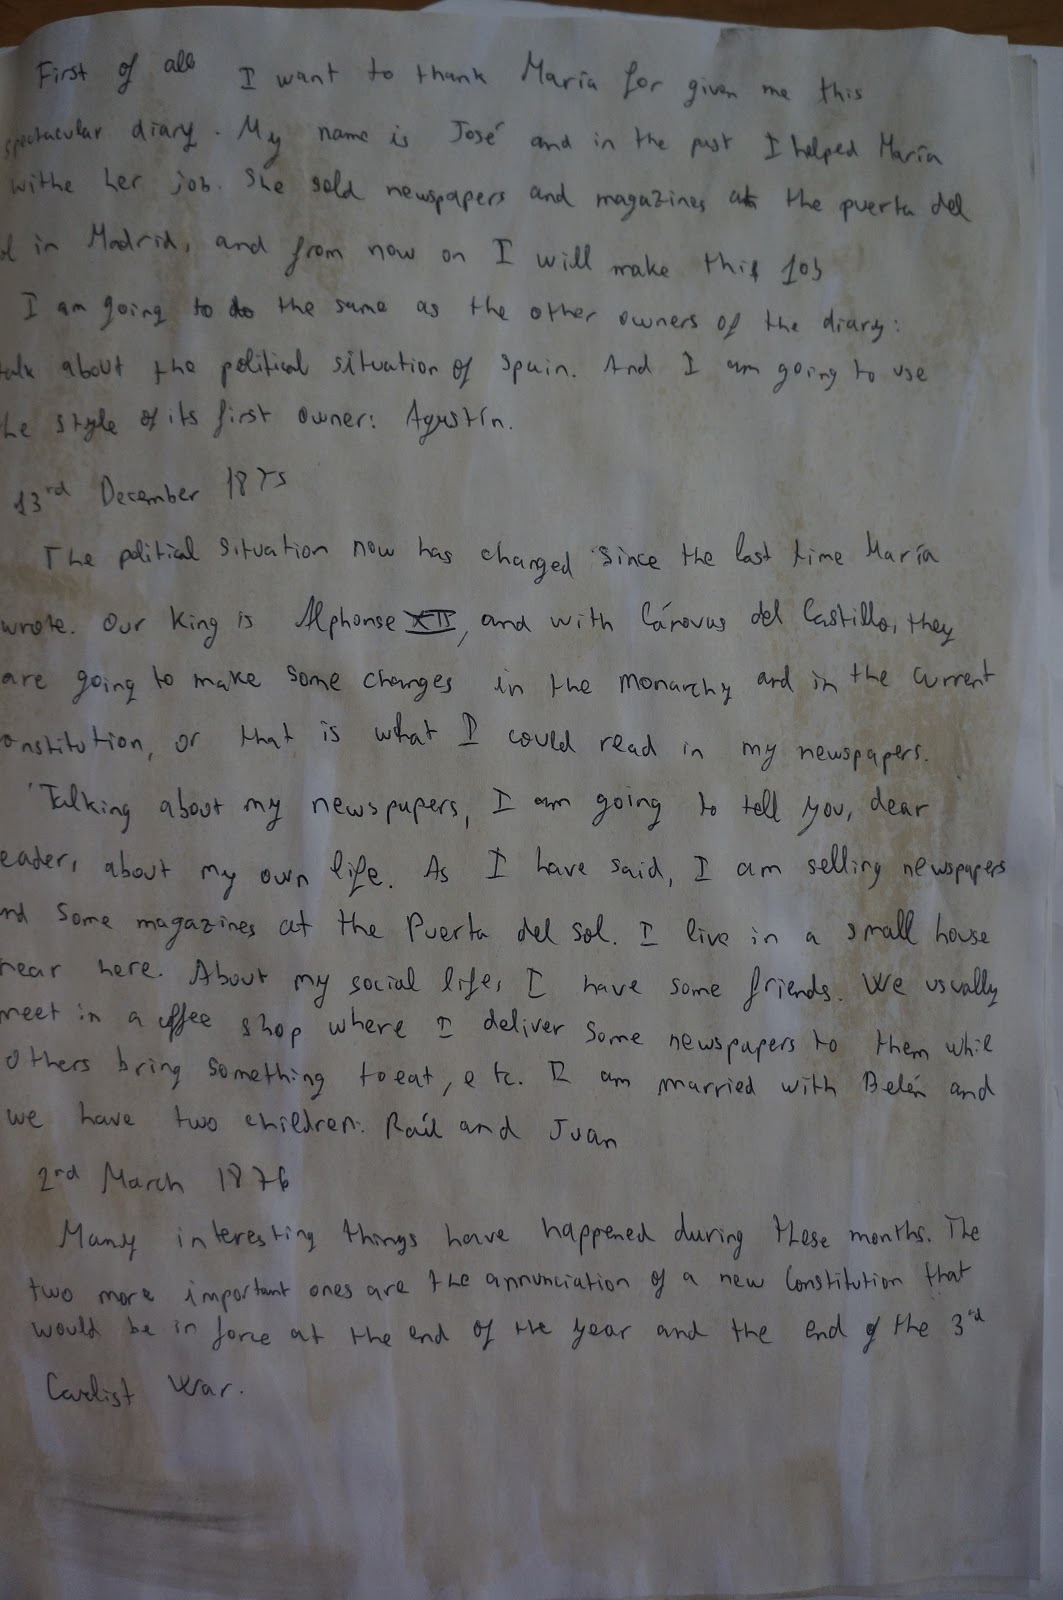 First of all I want to thank María for given me this
spectacular diary. My name is José and in the past I helped María
withe her job. She sold newspapers and magazines at the puerta del
ol in Madrid, and from now on I will make this job
I am going to do the same as the other owners of the diary:
talk about the political situation of spain. And I am going to use
he style of its first owner: Agustín.
13rd December 1875
The political situation now has changed since the last time María
wrote. Our King is Alphonse XII, and with Cánovas del Castillo, they
are going to make some changes in the monarchy and in the current
onstitution, or that is what I could read in my newspapers.
Talking about my newspapers, I am going to tell you, dear
eader, about my own life. As I have said, I am selling newspapers
nd some magazines at the Puerta del Sol. I live in a small house
near here. About my social life, I have some friends. We usually
meet in a coffee shop where I deliver some newspapers to them while
others bring something to eat, etc. I am married with Belén and
we have two children: Raúl and Juan
2nd March 1876
Many interesting things have happened during these months. The
two more important ones are the annunciation of a new Constitution that
would be in force at the end of the year and the end of the 3rd
Carlist War.